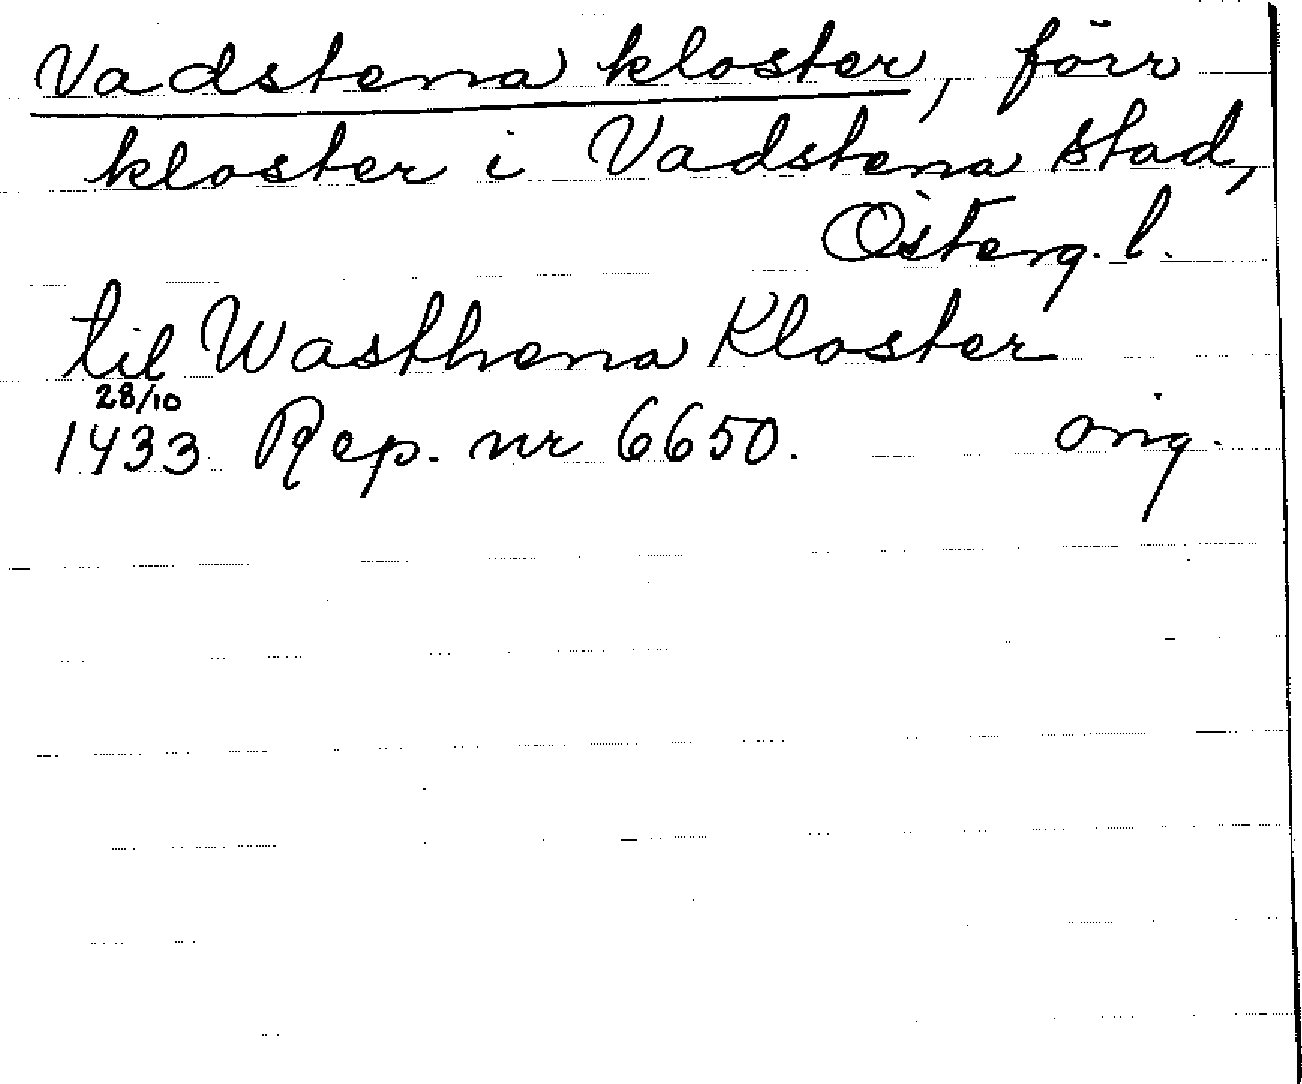 Vadstena kloster, förr
kloster i Vadstena stad,
Österg. l.
til Wasthena Kloster
28/10
1433 Rep. nr 6650. orig.